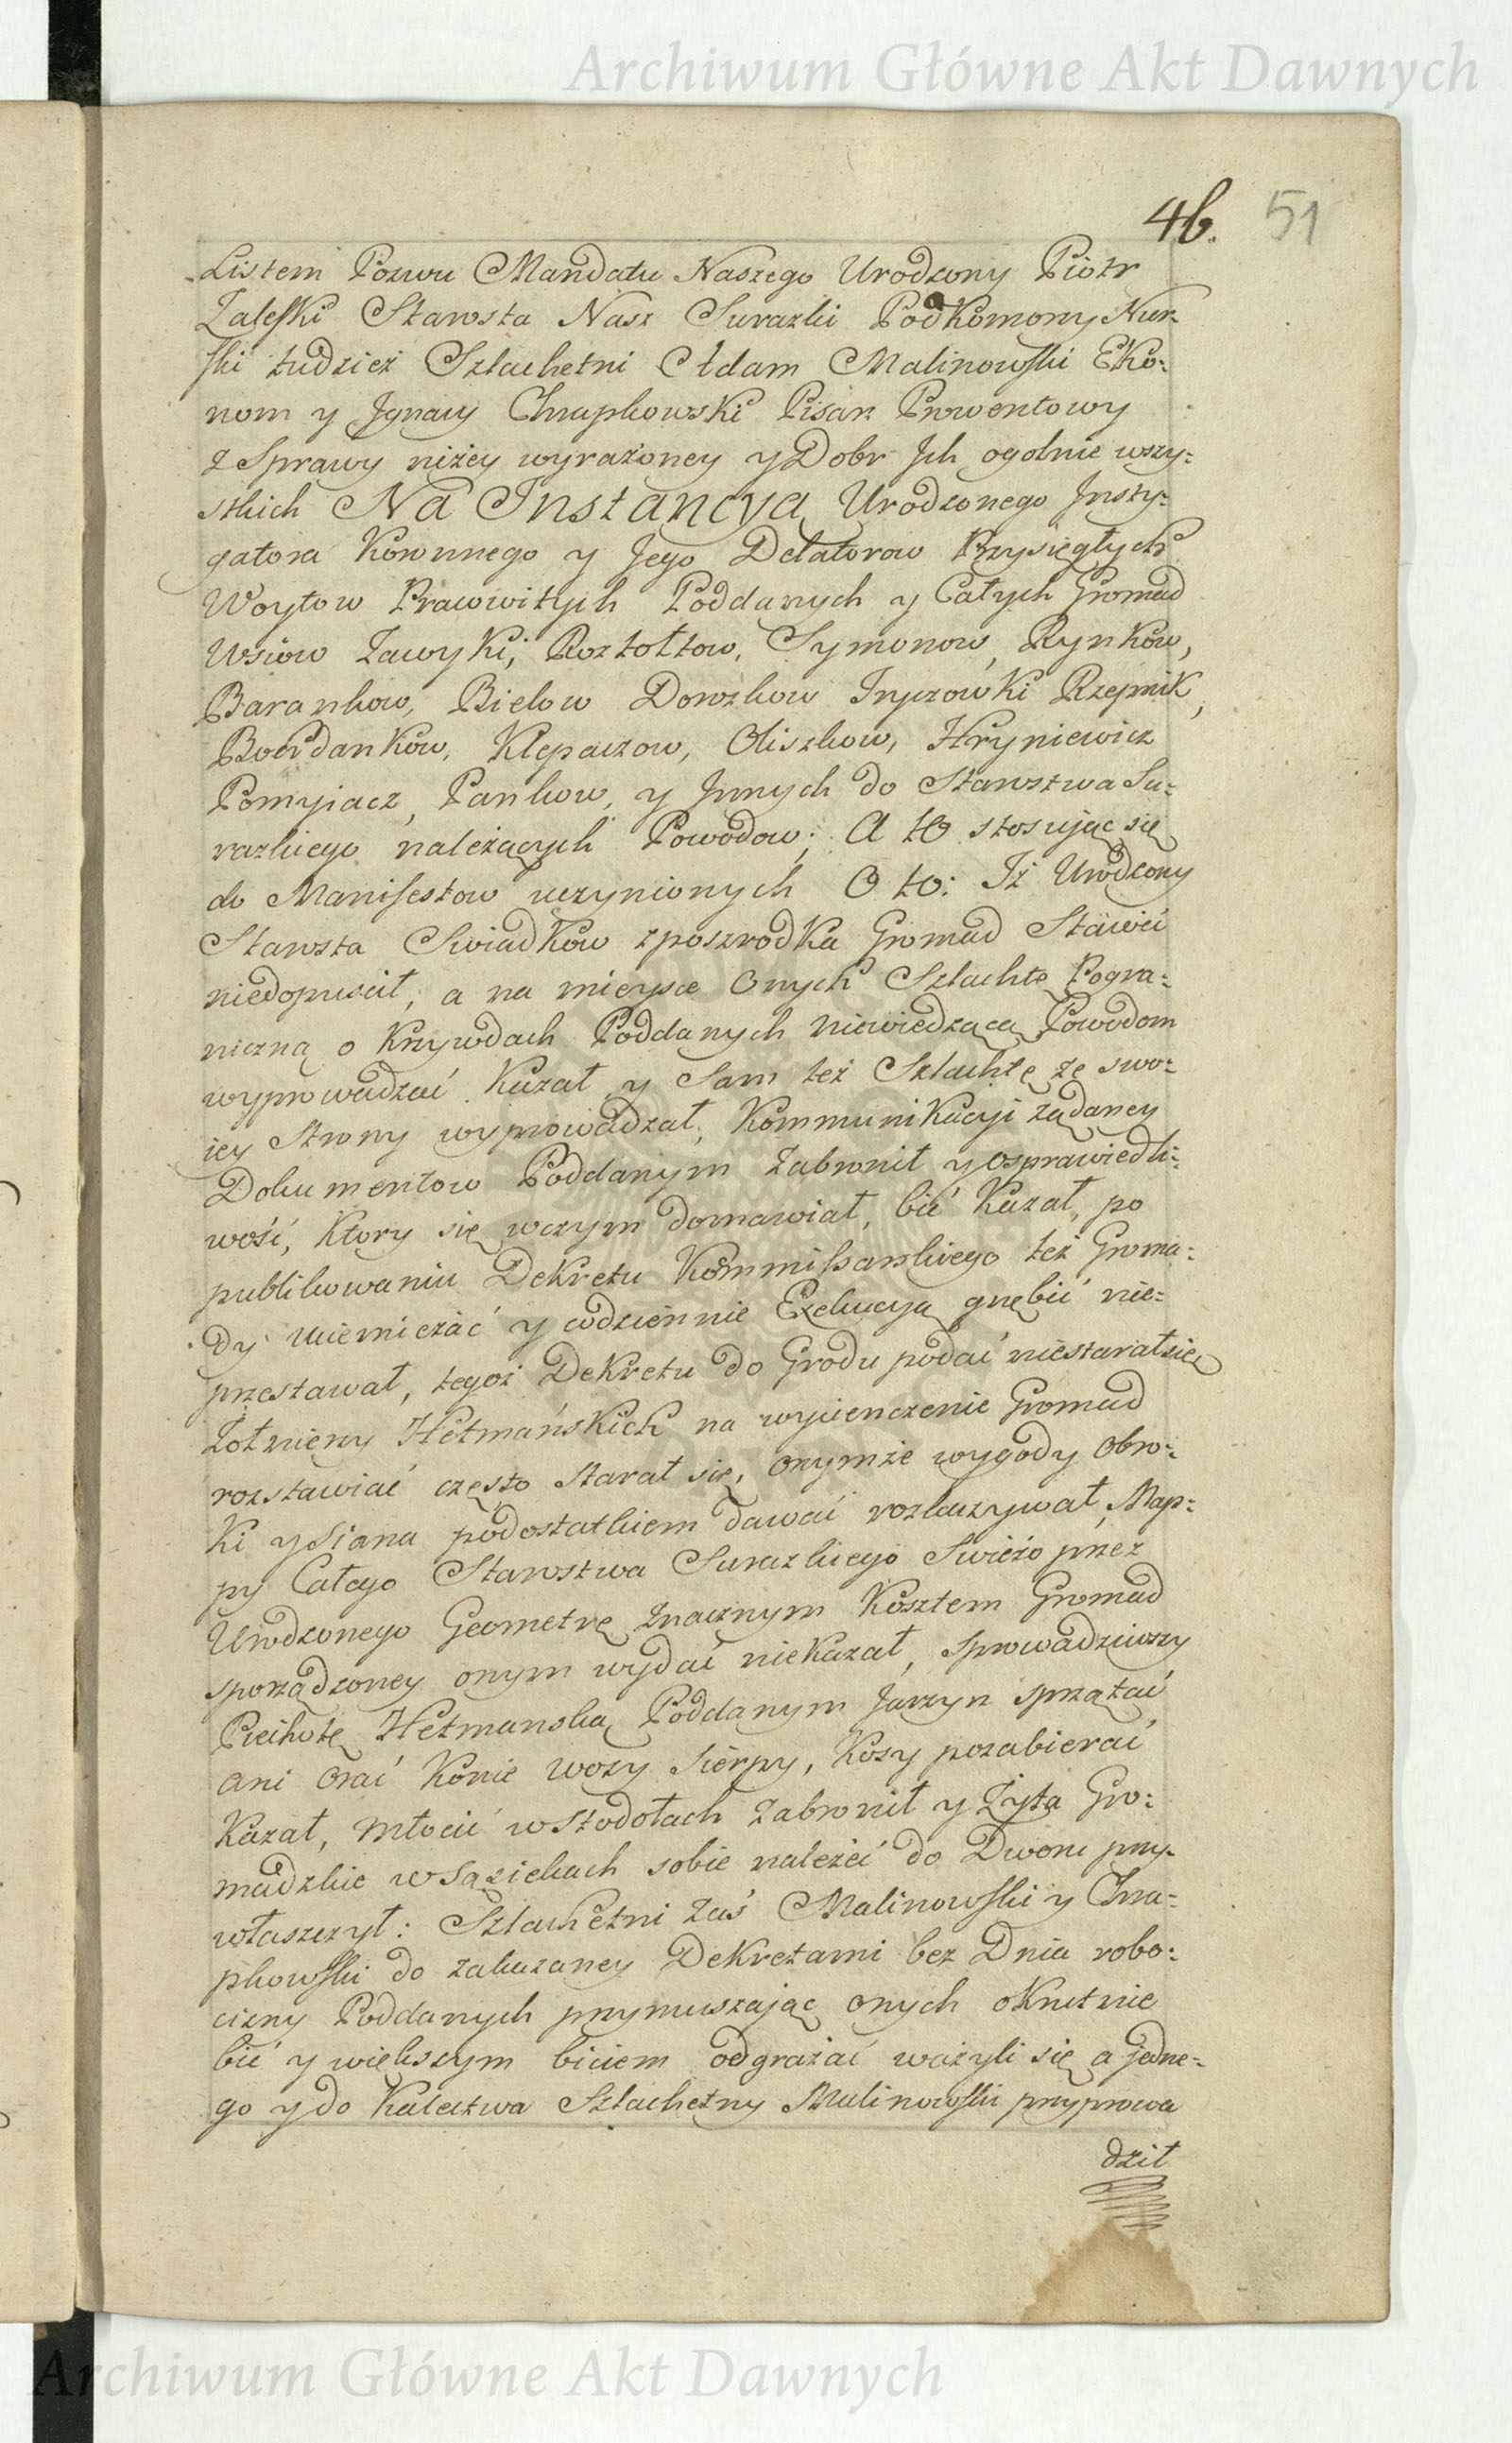 Archiwum Główne Akt Dawnych
46. 51
Listem Pozwu Mandatu Naszego Urodzony Piotr
Zaleski Starosta Nasz Surazki Podkomorzy Nur
ski tudzież Szlachetni Adam Malinowski Eko:
nom y Jgnacy Chrapkowski Pisarz Prowentowy
z Sprawy niżey wyrażoney y Dobr Jch ogolnie wszy:
stkich Na Instancyą Urodzonego Insty:
gatora Koronnego y Jego Delatorow Przysięgłych
Woytow Prawowitych Poddanych y Całych Gromad
Wsiow Zawyki, Rostołtow, Symonow, Rynkow,
Barankow, Bielow Dorozkow Inyczowki Rzepnik,
Bogdankow, Klepaczow, Oliszkow, Hryniewicz
Pomyiacz, Pankow, y Jnnych do Starostwa Su:
razkiego należących Powodow; A to stosując się
do Manifestow uczynionych O to: Jż Urodzony
Starosta Swiadkow zposzrodka Gromad Stawić
niedopuścił, a na mieysce Onych Szlachtę Pogra:
niczną o Krzywdach Poddanych niewiedzącą Powodom
wyprowadzać Kazał y Sam też Szlachtę ze swo:
iey Strony wyprowadzał, Kommunikacyi żądaney
Dokumentow Poddanym zabronił y osprawiedli:
wość, Ktory się wczym domawiał, bić Kazał, po
publikowaniu Dekretu Kommissarskiego też Groma:
dy uciemiężać y codziennie Exekucyą gnębić nie:
przestawał, tegoż Dekretu do Grodu podać niestarał się
Żołnierzy Hetmańskich na wycienczenie Gromad
rozstawiać często starał się, onymże wygody Obro:
ki y Siana podostatkiem dawać rozkazywał, Map:
py Całego Starostwa Surazkiego Swieżo przez
Urodzonego Geometrę znacznym Kosztem Gromad
sporządzoney onym wydać niekazał, sprowadziwszy
Piechotę Hetmanską Poddanym Jarzyn sprzątać
ani Orać Konie wozy Sierpy, Kosy pozabierać
Kazał, Młocić wstodołach zabronił y Zyta Gro:
madzkie wsąsiekach sobie należeć do Dworu przy:
właszczył: Szlachetni zaś Malinowski y Chra:
pkowski do zakazaney Dekretami bez Dnia robo:
cizny Poddanych przymuszając onych okrutnie
bić y większym biciem odgrażać ważyli się a jedne:
go y do Kalectwa Szlachetny Malinowski przyprowa
dził
Archiwum Główne Akt Dawnych